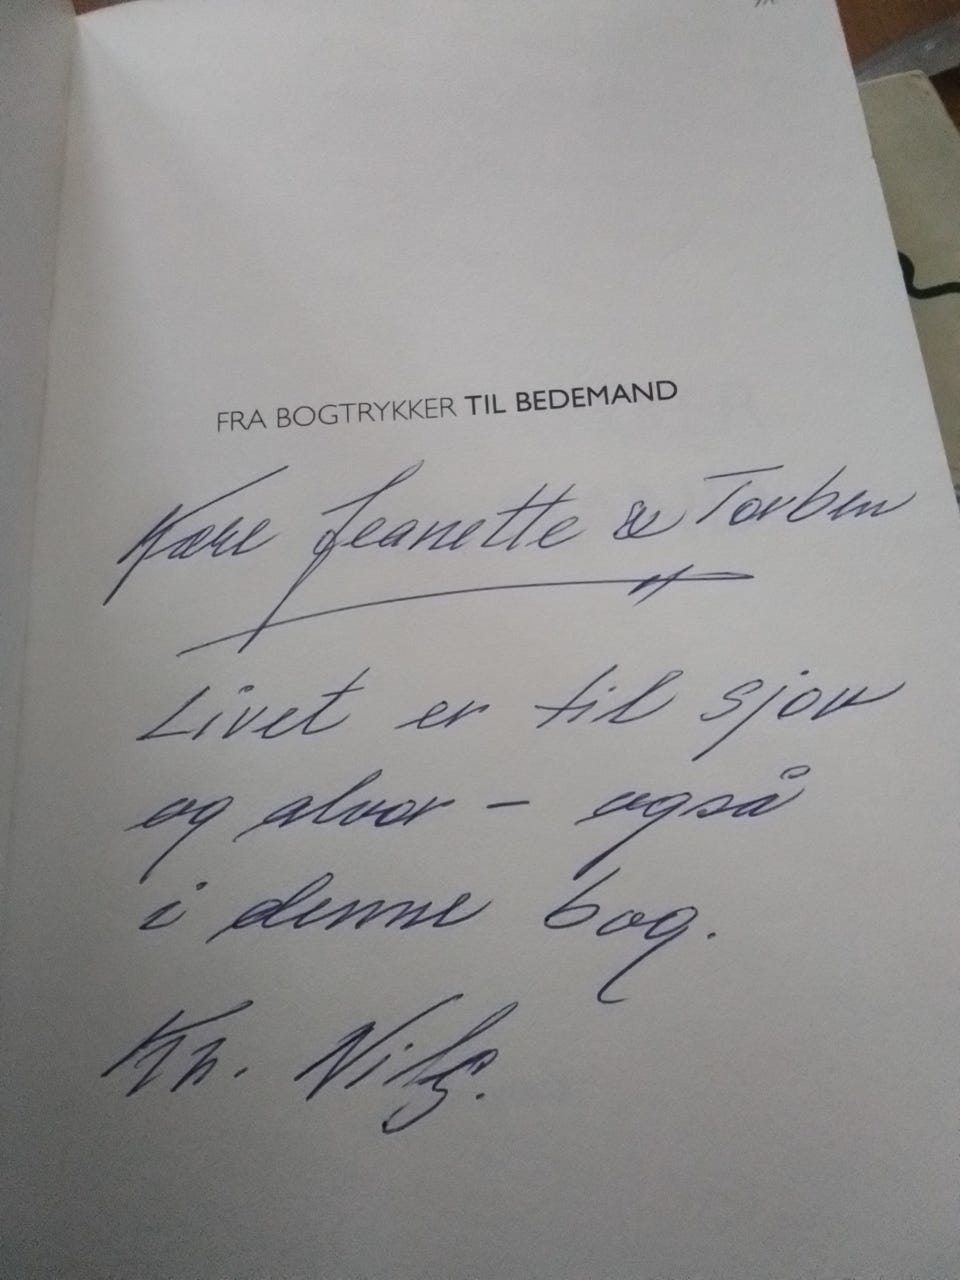 FRA BOGTRYKKER TIL BEDEMAND
Kære Jeanette & Torben
Livet er til sjov
og alvor – også
i denne bog.
Kh.